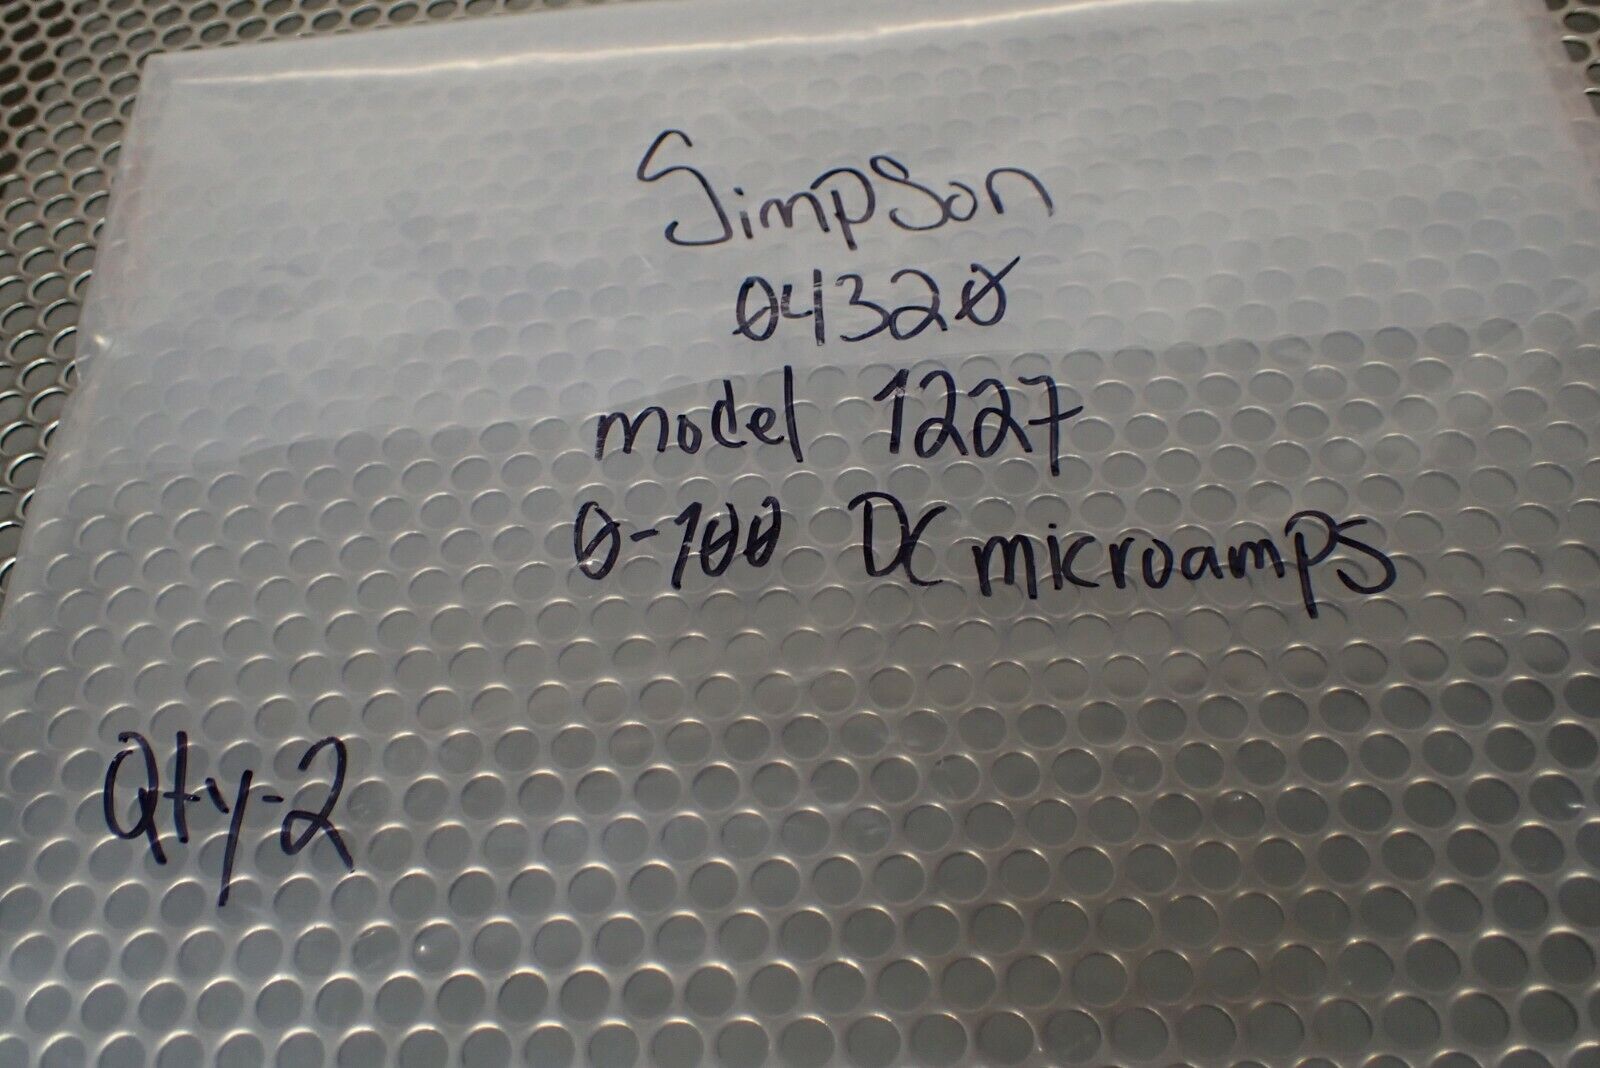 Simpson
04320
model 1227
0-100 DC microamps
Qty-2